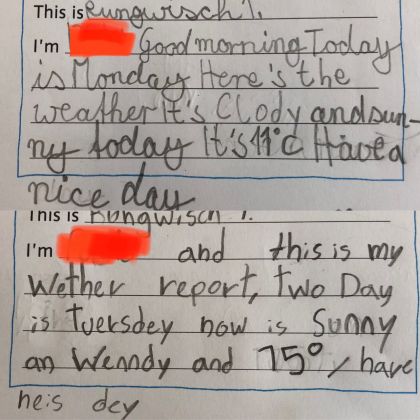 This is Rungwisch 1.
I'm Good morning Today
is Monday Here's the
weather It's Clody and sun-
ny today It's 11°C Have a
nice day
This is Rungwisch 1.
I'm and this is my
Wether report, Two Day
is tuersdey now is Sunny
an Wenndy and 15° / have
neis dey